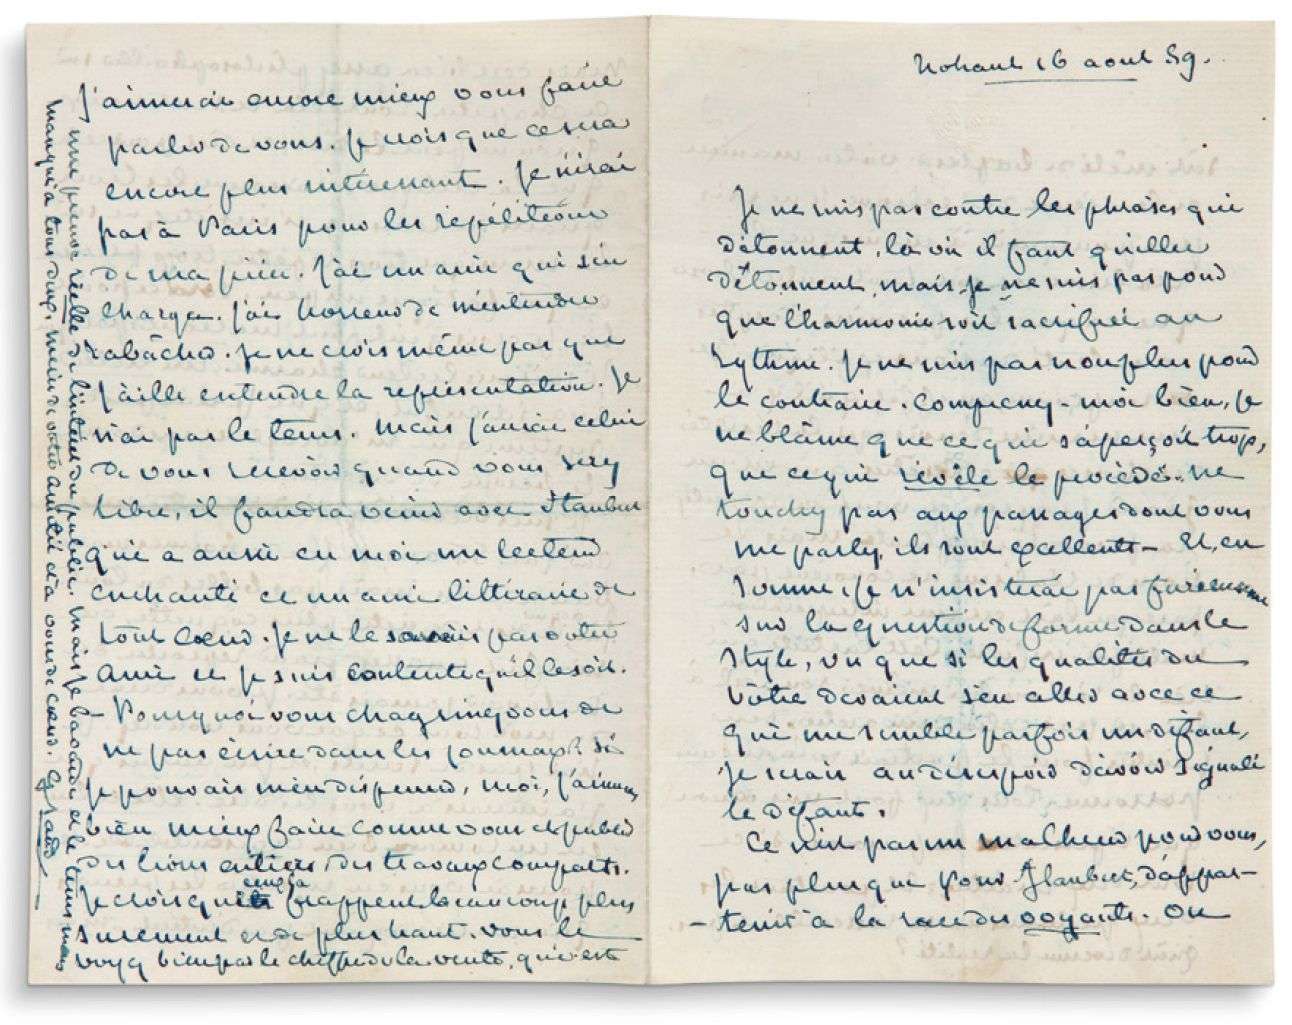 Nohant 16 aout 59.
Je ne suis pas contre les phrases qui
détonnent, là où il faut qu'elles
détonnent, mais je ne suis pas pour
que l'harmonie soit sacrifiée au
rythme. Je ne suis pas non plus pour
le contraire. Comprenez-moi bien, je
ne blâme que ce qui s'aperçoit trop,
que ce qui révèle le procédé. Ne
touchez pas aux passages dont vous
me parlez, ils sont excellents — Et, en
somme, je n'insisterai pas
sur la question de forme dans le
style, vu que si les qualités du
vôtre devaient s'en aller avec ce
qui me semble parfois un défaut,
je serais au désespoir d'avoir signalé
le défaut.
Ce n'est pas un malheur pour vous,
pas plus que pour Flaubert, d'appar-
-tenir à la race des voyants. On
J'aimerais encore mieux vous faire
parler de vous. Je crois que ce sera
encore plus intéressant. Je n'irai
pas à Paris pour les répétitions
de ma pièce. J'ai un ami qui s'en
charge. J'ai horreur de m'entendre
rabâcher. Je ne crois même pas que
j'aille entendre la représentation. Je
n'ai pas le tems. Mais j'aurai celui
de vous recevoir quand vous serez
libre, il faudra venir avec Flaubert
qui a aussi en moi un lecteur
enchanté et un ami littéraire de
tout cœur. Je ne le savais pas votre
ami et je suis contente qu'il le soit.
— Pourquoi vous chagrinez vous de
ne pas écrire dans les journaux? Si
je pouvais m'en dispenser, moi, j'aimerais
bien mieux faire comme vous et publier
des livres entiers, des travaux compacts.
Je crois que ceux-là frappent beaucoup plus
surement et de plus haut. Vous le
voyez bien par le chiffre de la vente, qui est
une preuve réelle de l'intérêt du public. Mais je bavarde et le tems nous
manque à tous deux. Merci de votre amitié et à vous de cœur. G. Sand